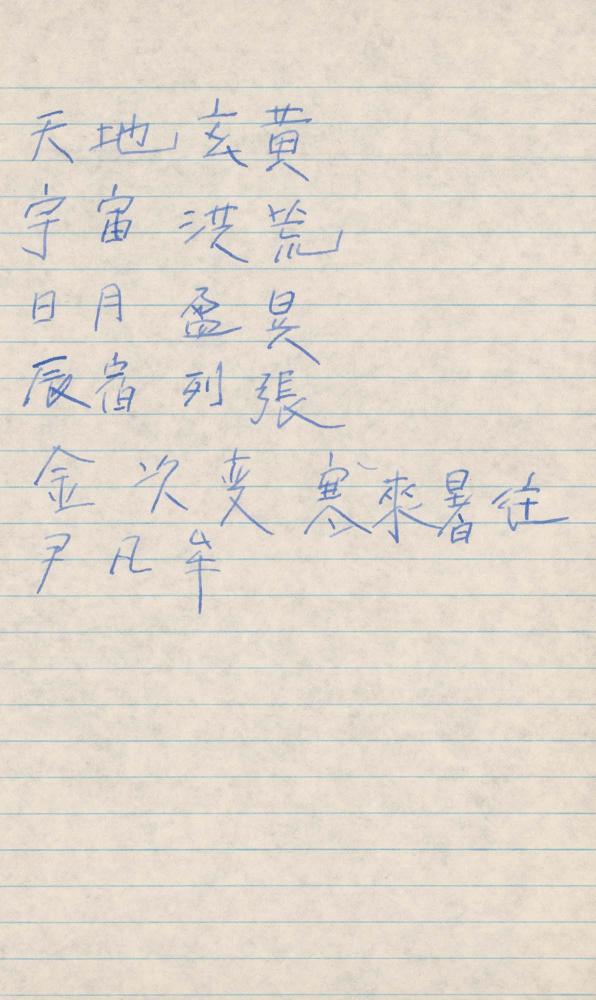 天地玄黃
宇宙洪荒
日月盈昃
辰宿列張
金次变寒來暑往
尹凡牟